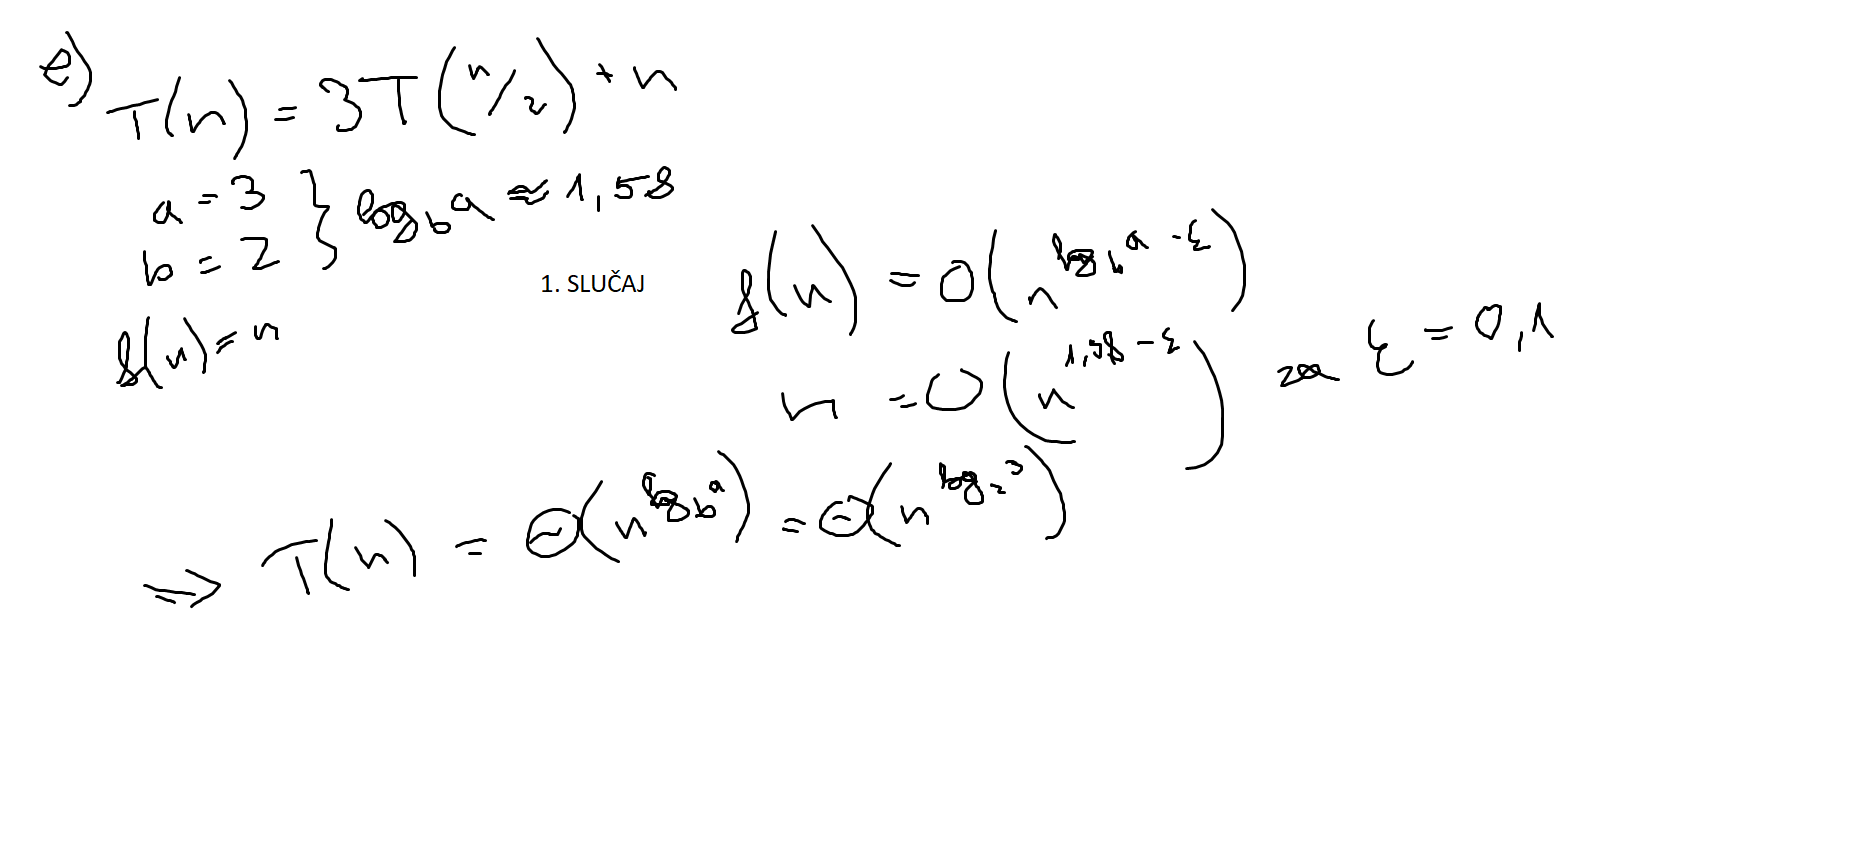 e)
T(n) = 3T(n/2) + n
a = 3
b = 2 } log_b a ≈ 1,58
f(n) = n
1. SLUČAJ
f(n) = O(n^(log_b a - ε))
n = O(n^(1,58 - ε)) za ε = 0,1
⇒ T(n) = Θ(n^(log_b a)) = Θ(n^(log_2 3))